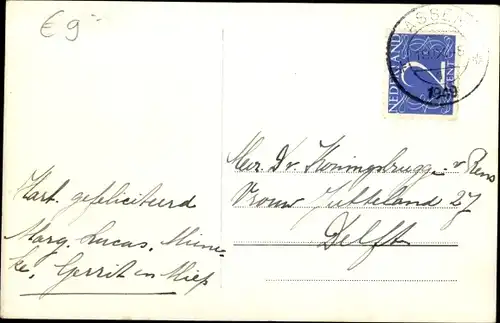 € 9
ASSEN
1949
NEDERLAND
2
CENT
Hart. gefeliciteerd
Marg. Lucas, Miene-
ke, Gerrit en Miep
Mev. Dr. Koningsbrugge v. Rens
Vrouw Jutteland 27
Delft